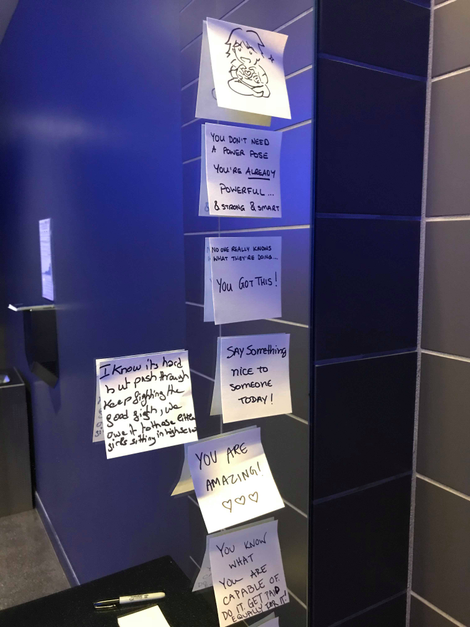 YOU DON'T NEED
A POWER POSE
YOU'RE ALREADY
POWERFUL...
& STRONG & SMART
NO ONE REALLY KNOWS
WHAT THEY'RE DOING...
YOU GOT THIS!
SAY SOMEthiNg
NICE TO
SOMEONE
TODAY!
I know its hard
but push through
Keep fighting the
good fight, we
owe it to those little
girls sitting in high school
YOU ARE
AMAZING!
YOU KNOW
WHAT
YOU ARE
CAPABLE OF
DO IT. GET PAID
EQUALLY FOR IT!